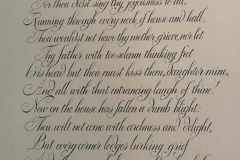 For thou dost sing thy joyousness to all,
Running through every nook of house and hall.
Thou wouldst not have thy mother grieve, nor let
Thy father with too solemn thinking fret
His head but thou must kiss them, daughter mine,
And all with that entrancing laugh of thine!
Now on the house has fallen a dumb blight:
Thou wilt not come with archness and delight,
But every corner lodges lurking grief